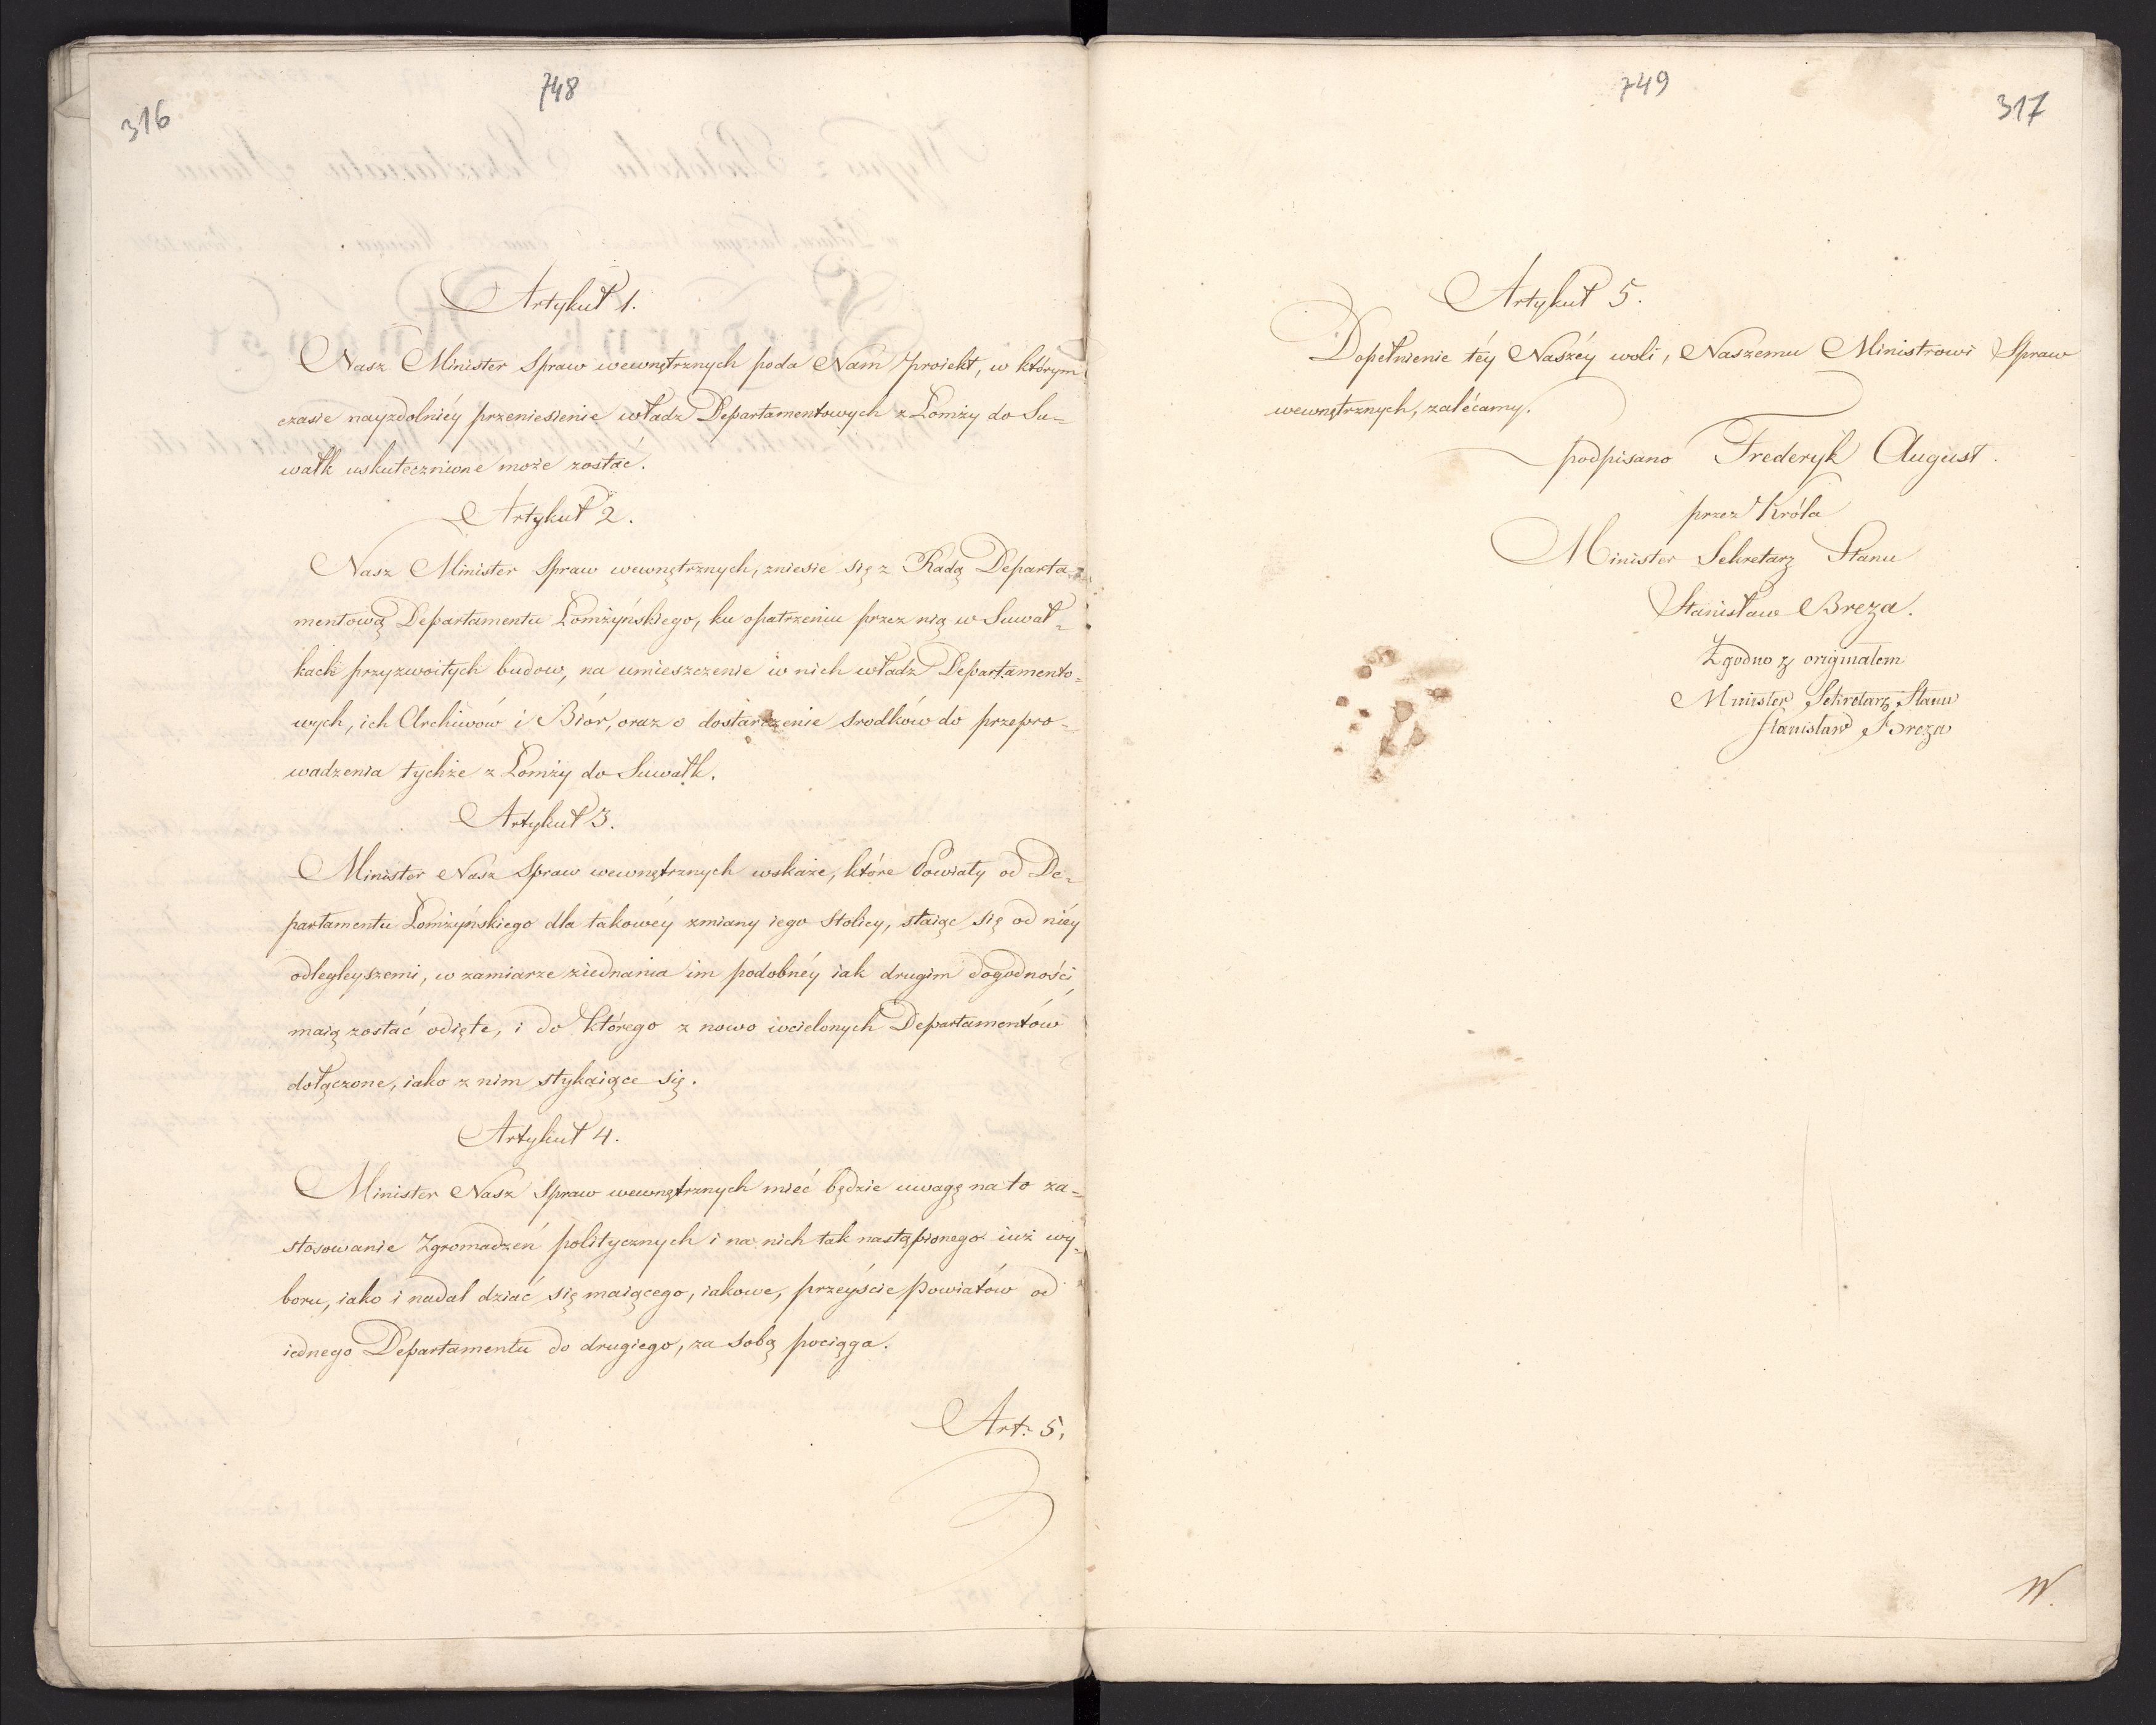 316
748
Artykuł 1.
Nasz Minister Spraw wewnętrznych poda Nam proiekt, w którym
czasie nayzdolniéy przeniesienie władz Departamentowych z Łomży do Su=
wałk uskutecznione może zostać.
Artykuł 2.
Nasz Minister Spraw wewnętrznych, zniesie się z Radą Departa=
mentową Departamentu Łomżyńskiego, ku opatrzeniu przez nią w Suwał=
kach przyzwoitych budow, na umieszczenie w nich władz Departamento=
wych, ich Archiwów i Biór, oraz o dostarczenie srodków do przepro=
wadzenia tychże z Łomży do Suwałk.
Artykuł 3.
Minister Nasz Spraw wewnętrznych wskaże, które Powiaty od De=
partamentu Łomżyńskiego dla takowéy zmiany iego Stolicy, staiąc się od niéy
odległeyszemi, w zamiarze ziednania im podobnéy iak drugim dogodności,
maią zostać odięte, i do którego z nowo wcielonych Departamentów
dołączone, iako z nim stykaiące się.
Artykuł 4.
Minister Nasz Spraw wewnętrznych mieć będzie uwagę na to za=
stosowanie Zgromadzeń politycznych i na nich tak nastąpionego iuż wy=
boru, iako i nadal dziać się maiącego, iakowe, przeyście powiatów od
iednego Departamentu do drugiego, za sobą pociąga.
Art: 5.
749
317
Artykuł 5.
Dopełnienie téy Naszéy woli, Naszemu Ministrowi Spraw
wewnętrznych, zalécamy.
podpisano Frederyk August.
przez Króla
Minister Sekretarz Stanu
Stanisław Breza.
Zgodno z oryginałem
Minister Sekretarz Stanu
Stanisław Breza
W.